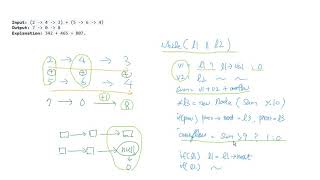 Input: (2 -> 4 -> 3) + (5 -> 6 -> 4)
Output: 7 -> 0 -> 8
Explanation: 342 + 465 = 807.
2 → 4 → 3
5 → 6 → 4
7 → 0 → 8
+1
null
0
while (l1 || l2)
v1 = l1 ? l1→val : 0
v2 =
sum = v1 + v2 +
l3 = new Node (sum % 10)
if(prev) prev→next = l3, prev = l3
sum > 9 ? 1 : 0
if(l1) l1 = l1→next
if(l2)